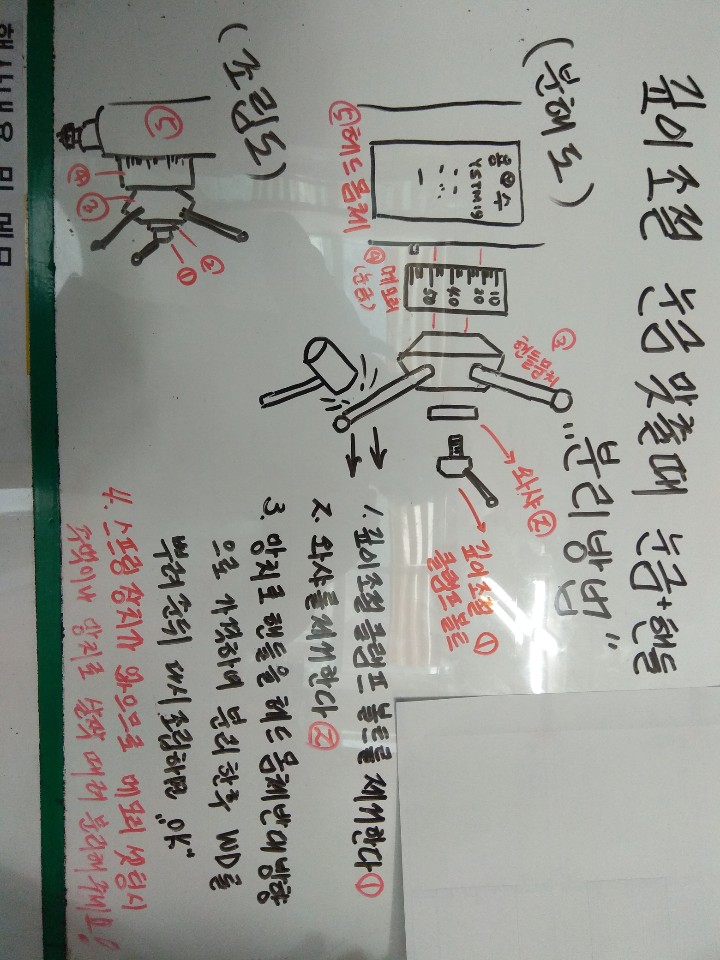 깊이조절 눈금 맞출때 눈금+핸들
"분리방법"
(분해도)
용수
YSTM19
⑤ 헤드몸체
④ 메모리
(눈금)
10
20
40
50
③
와샤 ②
깊이조절 ①
클램프 볼트
1. 깊이조절 클램프 볼트를 제거한다 ①
2. 와샤를 제거한다 ②
3. 망치로 핸들을 헤드몸체 반대방향
으로 가격하여 분리한후 WD를
뿌려준뒤 다시 조립하면 "OK"
4. 스프링 장치가 있으므로 메모리 셋팅시
주먹이나 망치로 살짝 때려 분리해주세요!
(조립도)
⑤
④
③
②
①
행사내용 및 메모